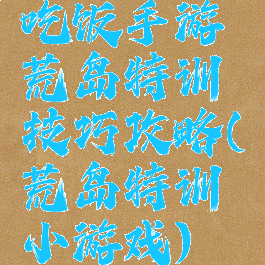 吃饭手游
荒岛特训
技巧攻略(
荒岛特训
小游戏)